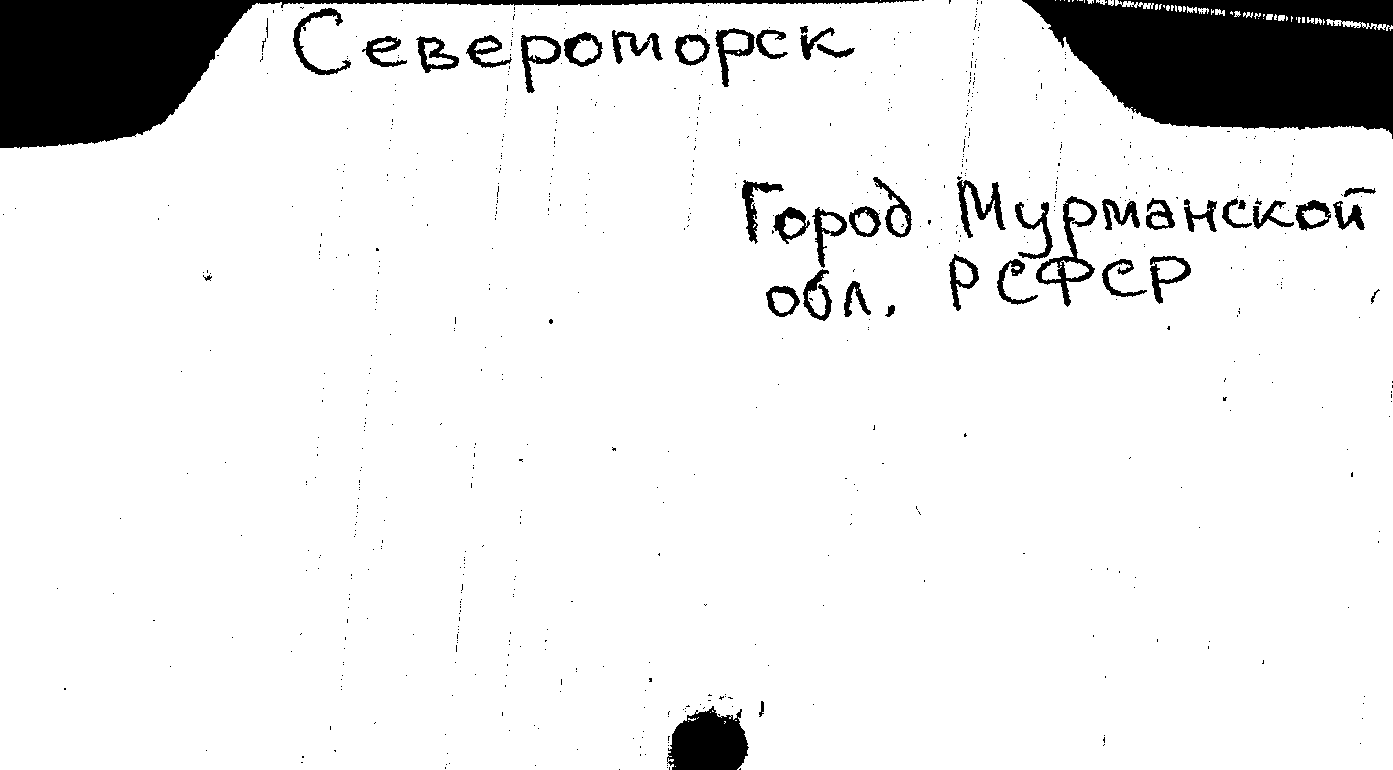 Североморск
Город Мурманской
обл. РСФСР